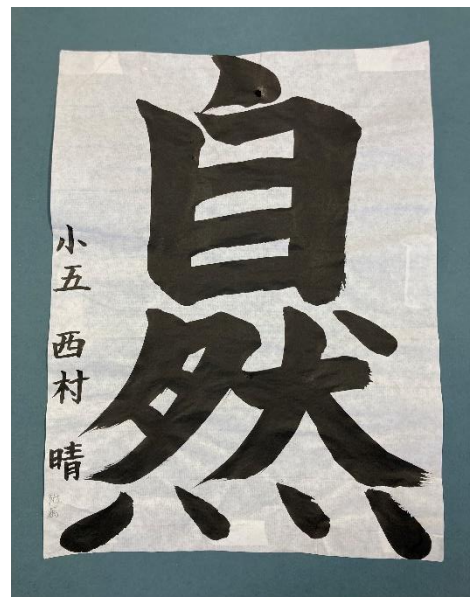 自然
小五 西村 晴